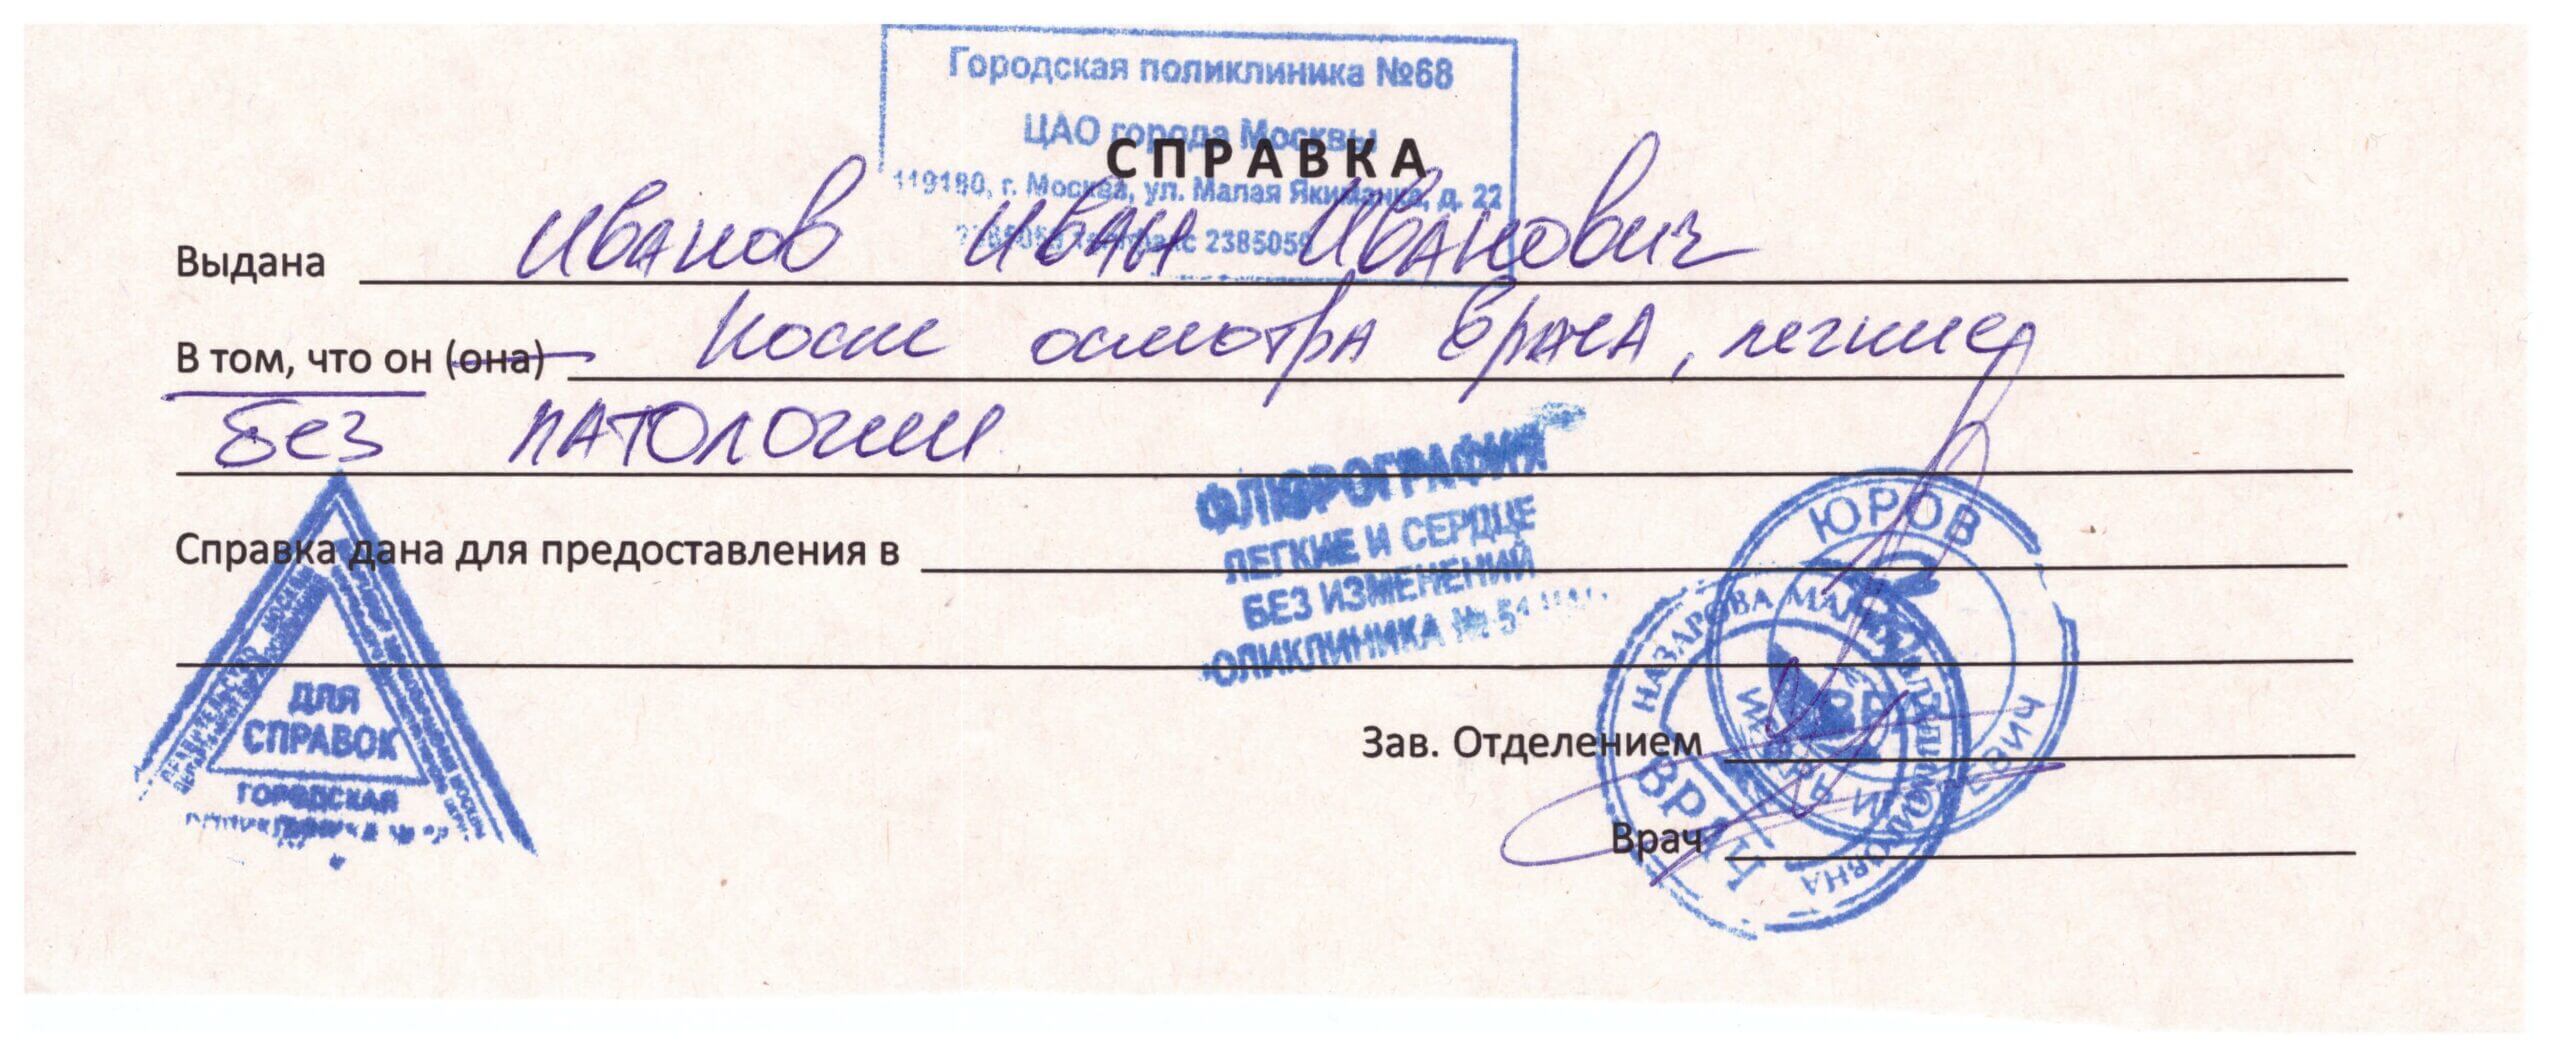 Городская поликлиника №68
ЦАО города Москвы
СПРАВКА
119180, г. Москва, ул. Малая Якиманка, д. 22
2385059
Выдана Иванов Иван Иванович
В том, что он (она) После осмотра врача, легкие
без патологии
ФЛЮРОГРАФИЯ
ЛЕГКИЕ И СЕРДЦЕ
БЕЗ ИЗМЕНЕНИЙ
ОЛИКЛИНИКА № 51
Справка дана для предоставления в
ДЛЯ
СПРАВОК
ГОРОДСКАЯ
ЮРОВ
НАЗАРОВА
Зав. Отделением
ВРАЧ
Врач